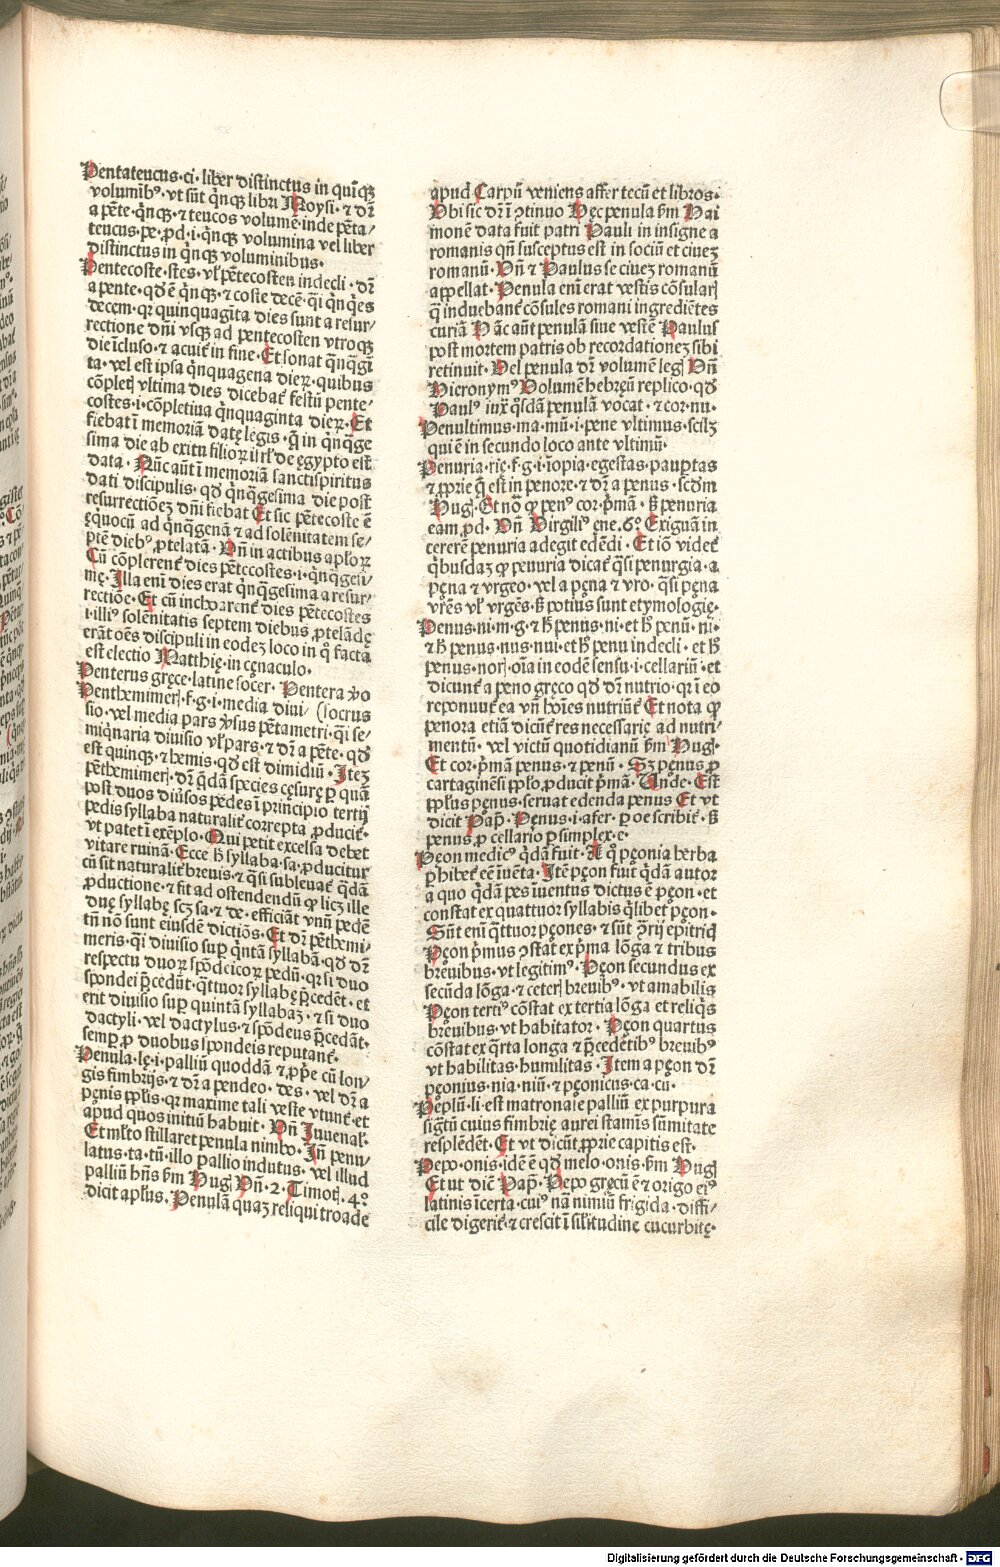 Pentateucus·ci·liber distinctus in quīqꝫ
volumībꝰ·vt sūt q̄nqꝫ libri Moysi·⁊ dr̄
a pēte·q̄nqꝫ·⁊ teucos volumē·inde pēta/
teucus·pe·ꝓd·i·q̄nqꝫ volumina vel liber
distinctus in q̄nqꝫ voluminibus·
Pentecoste·stes·vl̓ pētecosten indecli·dr̄
a pente·qd̓ ē q̄nqꝫ·⁊ coste decē·q̄i q̄nq̄es
decem·qꝛ quinquagīta dies sunt a resur/
rectione dn̄i vsqꝫ ad pentecosten vtroqꝫ
die īcluso·⁊ acuit̄ in fine·Et sonat q̄nq̄gī
ta·vel est ipsa q̄nquagena dieꝝ·quibus
cōplet̓ vltima dies dicebat̄ festū pente/
costes·i·cōpletiua q̄nquaginta dieꝝ·Et
fiebat ī memoriā datę legis·q̄ in q̄nq̄ge
sima die ab exitu filioꝝ isrl̓ de ęgypto est
data·Nūc aūt ī memoriā sanctispiritus
dati discipulis·qd̓ q̄nq̄gesima die post
resurrectiōeꝫ dn̄i fiebat Et sic pētecoste ē
ęquocū ad q̄nq̄genā ⁊ ad solēnitatem se/
ptē diebꝰ ꝓtelatā·Vn̄ in actibus apl̓oꝝ
Cū cōplerent̄ dies pētecostes·i·q̄nq̄gesi/
mę·Illa eni dies erat q̄nq̄gesima a resur/
rectiōe·Et cū inchoarent̄ dies pētecostes
·i·illiꝰ solēnitatis septem diebus ꝓtelādę
erāt oēs discipuli in eodeꝫ loco in q̊ facta
est electio Matthię·in cęnaculo·
Penterus gręce·latine socer·Pentera ꝟo
Penthemimer̓·f·g·i·media diui/ (socrus
sio·vel media pars ꝟsus pētametri·q̄i se/
miq̄naria diuisio vl̓ pars·⁊ dr̄ a pēte·qd̓
est quinqꝫ·⁊ hemis·qd̓ est dimidiū·Iteꝫ
pēthemimer̓·dr̄ q̄dā species cęsurę ꝑ quā
post duos diūsos pedes ī principio tertij
pedis syllaba naturalit̄ correpta ꝓducit̄·
vt patet ī exēplo·Qui petit excelsa debet
vitare ruinā·Ecce h̓ syllaba·sa·ꝓducitur
cū sit naturalit̄ breuis·⁊ q̄si subleuat̄ q̄dā
ꝓductione·⁊ fit ad ostendendū ꝙ licꝫ ille
duę syllabę scꝫ sa·⁊ de·efficiāt vnū pedē
tn̄ nō sunt eiusdē dictiōs·Et dr̄ pēthemi/
meris·q̄i diuisio suꝑ q̄ntā syllabā·qd̓ dr̄
respectu duoꝝ spōdeicoꝝ pedū·qꝛ si duo
spondei p̄cedūt·q̄ttuor syllabę p̄cedēt·et
erit diuisio suꝑ quintā syllabaꝫ·⁊ si duo
dactyli·vel dactylus·⁊ spōdeus p̄cedāt·
semꝑ ꝓ duobus spondeis reputant̄·
Penula·lę·i·palliū quoddā ⁊ ꝓp̄e cū lon/
gis fimbrijs·⁊ dr̄ a pendeo·des·vel dr̄ a
pęnis ppl̓is·qꝛ maxime tali veste vtunt̄·et
apud quos initiū habuit·Vn̄ Iuuenal̓·
Et ml̓to stillaret penula nimbo·In̄ penu/
latus·ta·tū·illo pallio indutus·vel illud
palliū hn̄s ẜm Hug̓ Vn̄·2·Timot̓·4°
dicit apl̓us·Penulā quaꝫ reliqui troade
apud Carpū veniens affer tecū et libros·
Vbi sic dr̄ ī ꝯtinuo Hęc penula ẜm Hai
monē data fuit patri Pauli in insigne a
romanis qn̄ susceptus est in sociū et ciueꝫ
romanū·Vn̄ ⁊ Paulus se ciueꝫ romanū
appellat·Penula eni erat vestis cōsular̓
q̄ induebant̄ cōsules romani ingrediētes
curiā Hāc aūt penulā siue vestē Paulus
post mortem patris ob recordationeꝫ sibi
retinuit·Vel penula dr̄ volumē leg̓ Vn̄
Hieronymꝰ Volumē hebręū replico·qd̓
Paulꝰ iuxͣ q̊sdā penulā vocat·⁊ cor·nu·
Penultimus·ma·mū·i·pene vltimus·scilꝫ
qui ē in secundo loco ante vltimū·
Penuria·rię·f·g·i·īopia·egestas·pauꝑtas
⁊ ꝓprie q̄ est in penore·⁊ dr̄ a penus·scd̓m
Hug̓·Et nō ꝙ penꝰ cor·p̄mā·ß penuria
eam ꝓd·Vn̄ Virgiliꝰ ene·6°·Exiguā in
cererē penuria adegit edēdi·Et iō videt̄
q̄busdaꝫ ꝙ penuria dicat̄ q̄si penurgia·a
pęna ⁊ vrgeo·vel a pęna ⁊ vro·q̄si pęna
vrēs vl̓ vrgēs·ß potius sunt etymologię·
Penus·ni·m·g·⁊ h̓ penus·ni·et h̓ penū·ni·
⁊ h̓ penus·nus·nui·et h̓ penu indecli·et h̓
penus·nor̓·oīa in eodē sensu·i·cellariū·et
dicunt̄ a peno gręco qd̓ dr̄ nutrio·qꝛ ī eo
reponunt̄ ea vn̄ hoīes nutriūt̄ Et nota ꝙ
penora etiā dicūt̄ res necessarię ad nutri/
mentū·vel victū quotidianū ẜm Hug̓·
Et cor·p̄mam penus·⁊ penū·Sꝫ pęnus ꝓ
cartaginēsi ppl̓o ꝓducit p̄mā·Unde·Est
ppl̓us pęnus·seruat edenda penus Et vt
dicit Pap̄·Pęnus·i·afer·ꝑ oe scribit̄·ß
penus ꝓ cellario ꝑ simplex·e·
Pęon medicꝰ q̄dā fuit·A q̊ pęonia herba
ꝑhibet̄ eē īuēta·Itē pęon fuit q̄dā autor
a quo q̄dā pes īuentus dictus ē pęon·et
constat ex quattuor syllabis q̄libet pęon·
Sūt eni q̄ttuor pęones·⁊ sūt ꝯ̄rij epitritꝭ
Pęon p̄mus ꝯstat ex p̄ma lōga ⁊ tribus
breuibus·vt legitimꝰ·Pęon secundus ex
secūda lōga·⁊ ceter̓ breuibꝰ·vt amabilis
Pęon tertiꝰ cōstat ex tertia lōga et reliq̄s
breuibus·vt habitator·Pęon quartus
cōstat ex q̄rta longa ⁊ p̄cedētibꝰ breuibꝰ
vt habilitas·humilitas·Item a pęon dr̄
pęonius·nia·niū·⁊ pęonicus·ca·cū·
Peplū·li·est matronale palliū ex purpura
sig̅tū cuius fimbrię aurei stamīs sūmitate
resplēdēt·Et vt dicūt ꝓprie capitis est·
Pepo·onis·idē ē qd̓ melo·onis·ẜm Hug̓
Et ut dicit̄ Pap̄·Pepo gręcū ē ⁊ origo eiꝰ
latinis īcerta·cuiꝰ nā nimiū frigida·diffi/
cile digerit̄·⁊ crescit ī sil̓itudine cucurbitę·
Digitalisierung gefördert durch die Deutsche Forschungsgemeinschaft - DFG